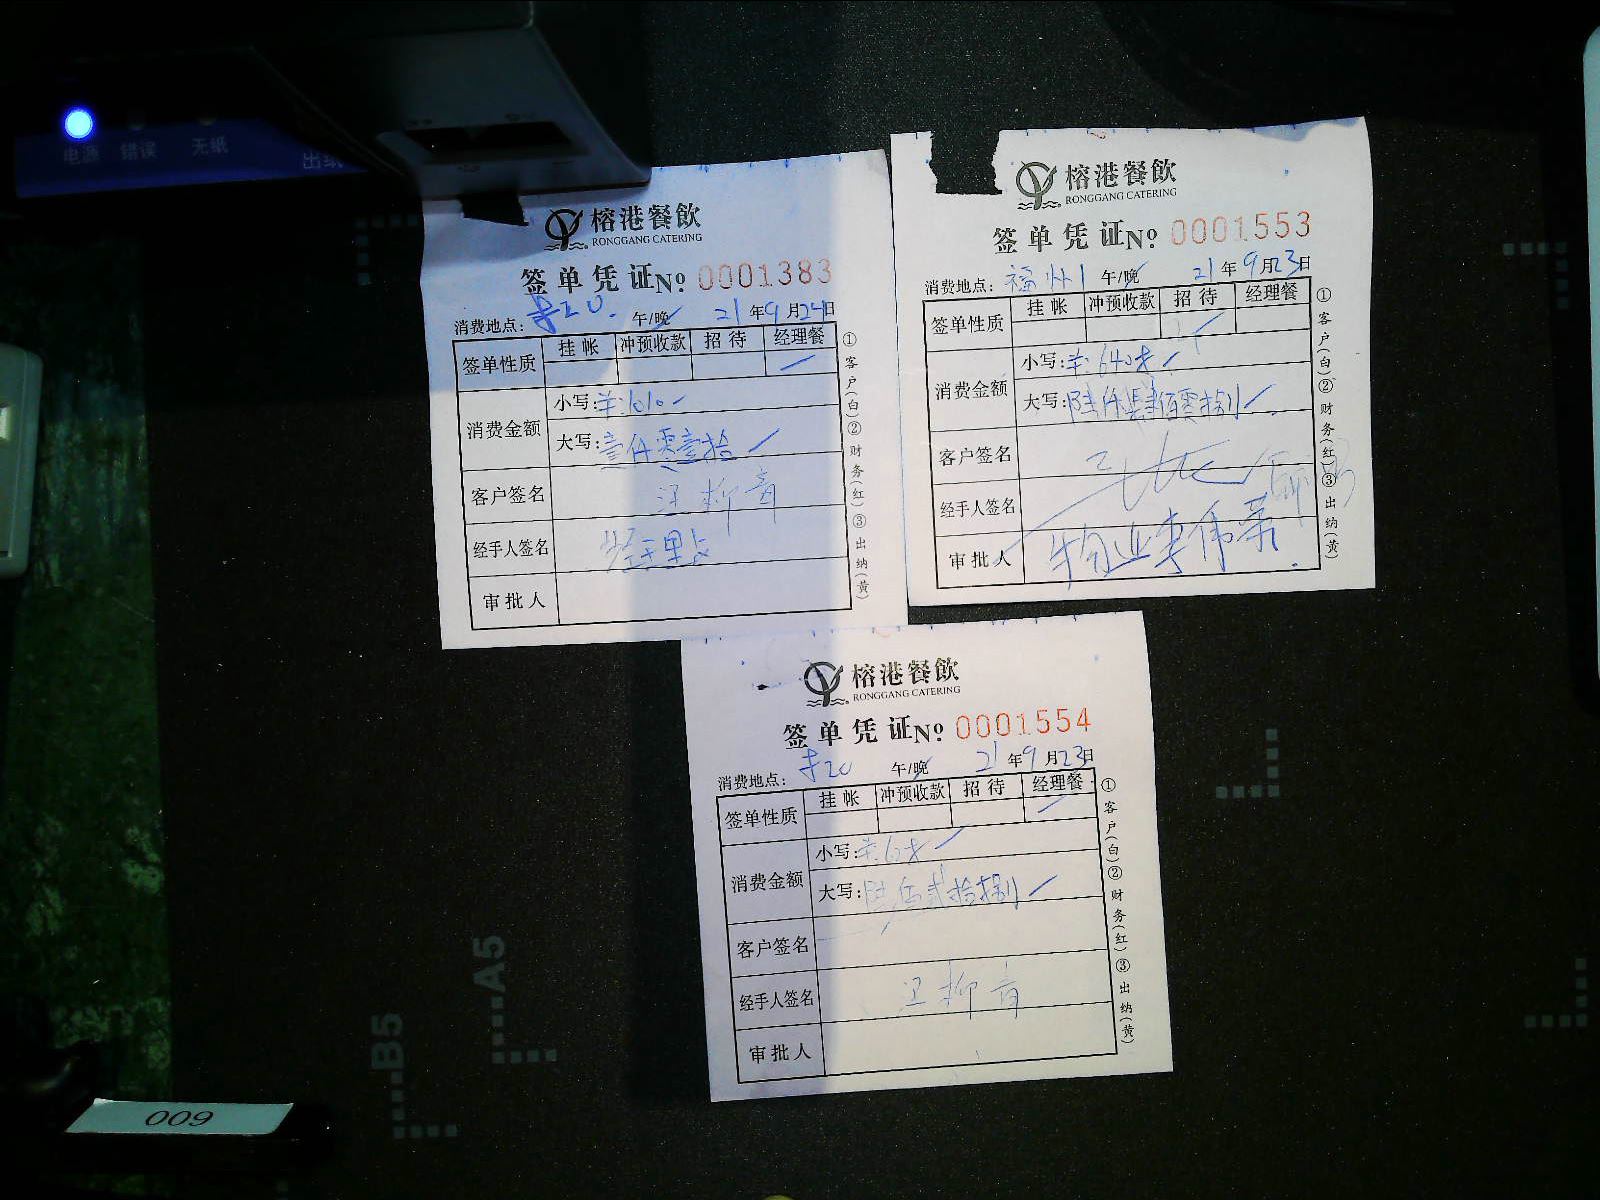 电源 错误 无纸 出纸
榕港餐飲
RONGGANG CATERING
签单凭证No 0001383
消费地点: 20. 午/晚 21年9月24日
签单性质 挂帐 冲预收款 招待 经理餐
消费金额 小写:¥:1010
大写:壹仟零壹拾
客户签名 柳青
经手人签名
审批人
①客户(白)②财务(红)③出纳(黄)
榕港餐飲
RONGGANG CATERING
签单凭证No 0001553
消费地点: 福州1 午/晚 21年9月23日
签单性质 挂帐 冲预收款 招待 经理餐
消费金额 小写:¥:640
大写:陆仟肆佰零捌
客户签名
经手人签名
审批人 物业李伟荣
①客户(白)②财务(红)③出纳(黄)
榕港餐飲
RONGGANG CATERING
签单凭证No 0001554
消费地点: 20 午/晚 21年9月23日
签单性质 挂帐 冲预收款 招待 经理餐
消费金额 小写:
大写:陆佰贰拾捌
客户签名
经手人签名 柳青
审批人
①客户(白)②财务(红)③出纳(黄)
A5
B5
009